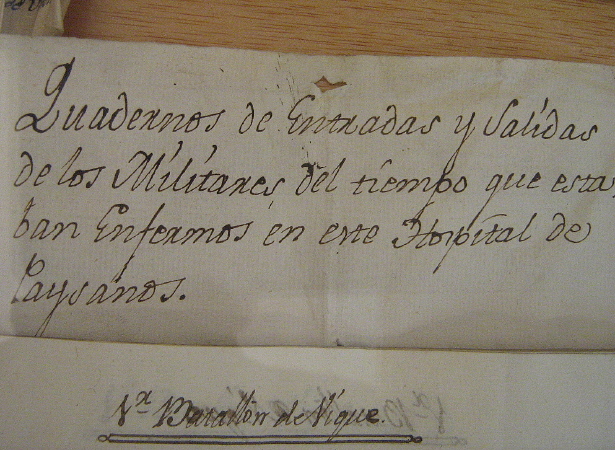 Quadernos de Entradas y Salidas
de los Militares del tiempo que esta
ban Enfermos en este Hospital de
Paysanos.
Batallon de Vique.